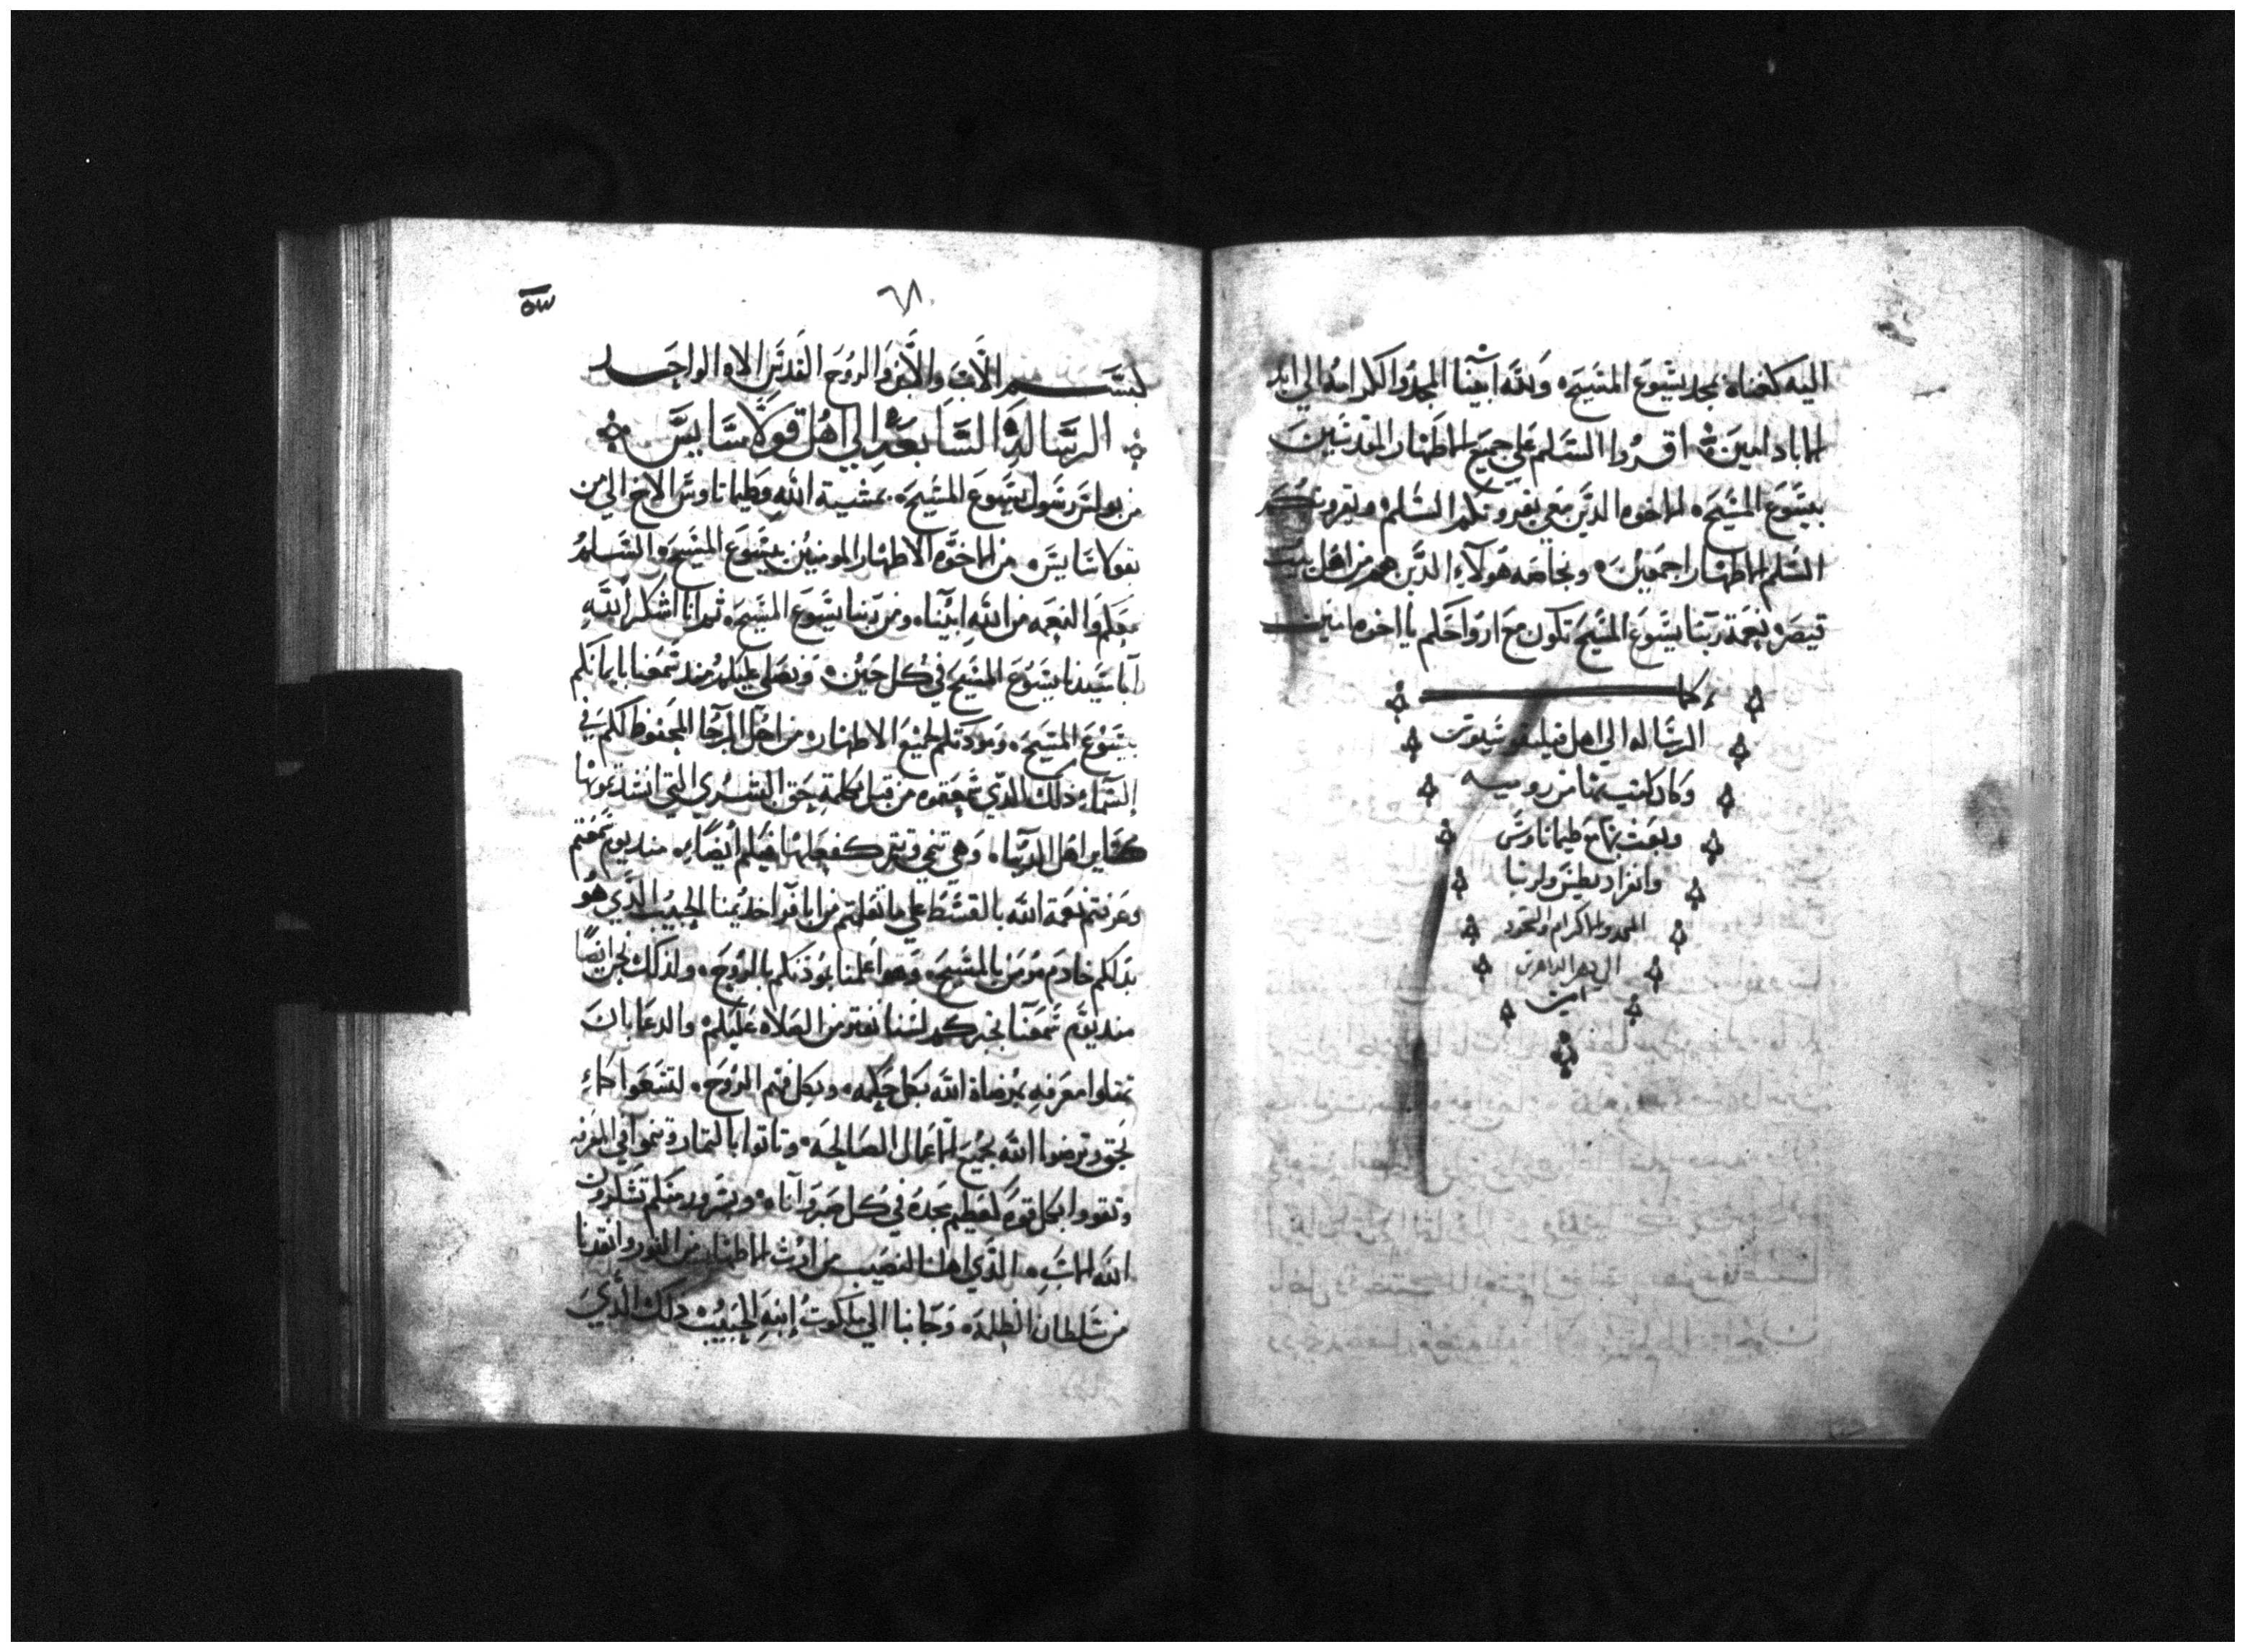 اليه كغناه بمجد يشوع المسيح ولله ابينا المجد والكرامه الي ابد
الاباد امين اقروا السلم علي جميع الاطهار المقدسين
بيسوع المسيح الاخوه الدين معي يقرونكم السلم ويقرونكم
السلم الاطهار اجمعين وبخاصه هولاء الدين هم من اهل بيت
قيصر نعمة ربنا يسوع المسيح تكون مع ارواحكم يا اخوه امين
كملت
الرساله الي اهل فيلبفوسيوس
وكان كتب بها من روميه
وبعت بها مع طيماتاوس
وافراديطس ولربنا
المجد والاكرام والسجود
الي دهر الداهرين
امين
٦٨
بسم الاب والابن والروح القدس الاه الواحد
الرسالة السابعة الي اهل قولاسايس
من بولس رسول يسوع المسيح بمشية الله وطيماتاوس الاخ الي من
بقولاسايس من الاخوه الاطهار المومنين بيسوع المسيح السلم
معكم والنعمه من الله ابينا ومن ربنا يسوع المسيح ثم انا اشكر الله
ابا سيدنا يسوع المسيح في كل حين ونصلي عليكم مند سمعنا بايمانكم
بيسوع المسيح ومودتكم لجميع الاطهار من اجل الرجا المحفوظ لكم في
السماء دلك الدي سمعتوه من قبل بكلمة حق البشري التي انشد بموها
كساير اهل الدنيا وهي تنمي وتتمر كفعلها فيكم ايضا مند يوم سمعتم
وعرفتم نعمة الله بالقسط علي ما تعلمتم من ابافرا خديمنا الحبيب الدي هو
بدلكم خادم مومن بالمسيح وهو اعلمنا بودكم بالروح ولدلك نحن ايضا
مند يوم سمعنا بخبركم لسنا نفتر من الصلاه عليكم والدعا بان
تمتلوا معرفه بمرضاة الله بكل حكمه وبكل فهم الروح لتسعوا كما
بحق وترضوا الله بجميع الاعمال الصالحه وتاتوا بالتمار وتنموا في المعرفه
وتقووا بكل قوة لعظيم مجده في كل صبر واناه وبسرور منكم تشكرون
الله الاب الدي اهلنا لنصيب من ارث الاطهار من النور وانقدنا
من سلطان الظلمه وجانبا الي ملكوت ابنه الحبيب دلك الدي